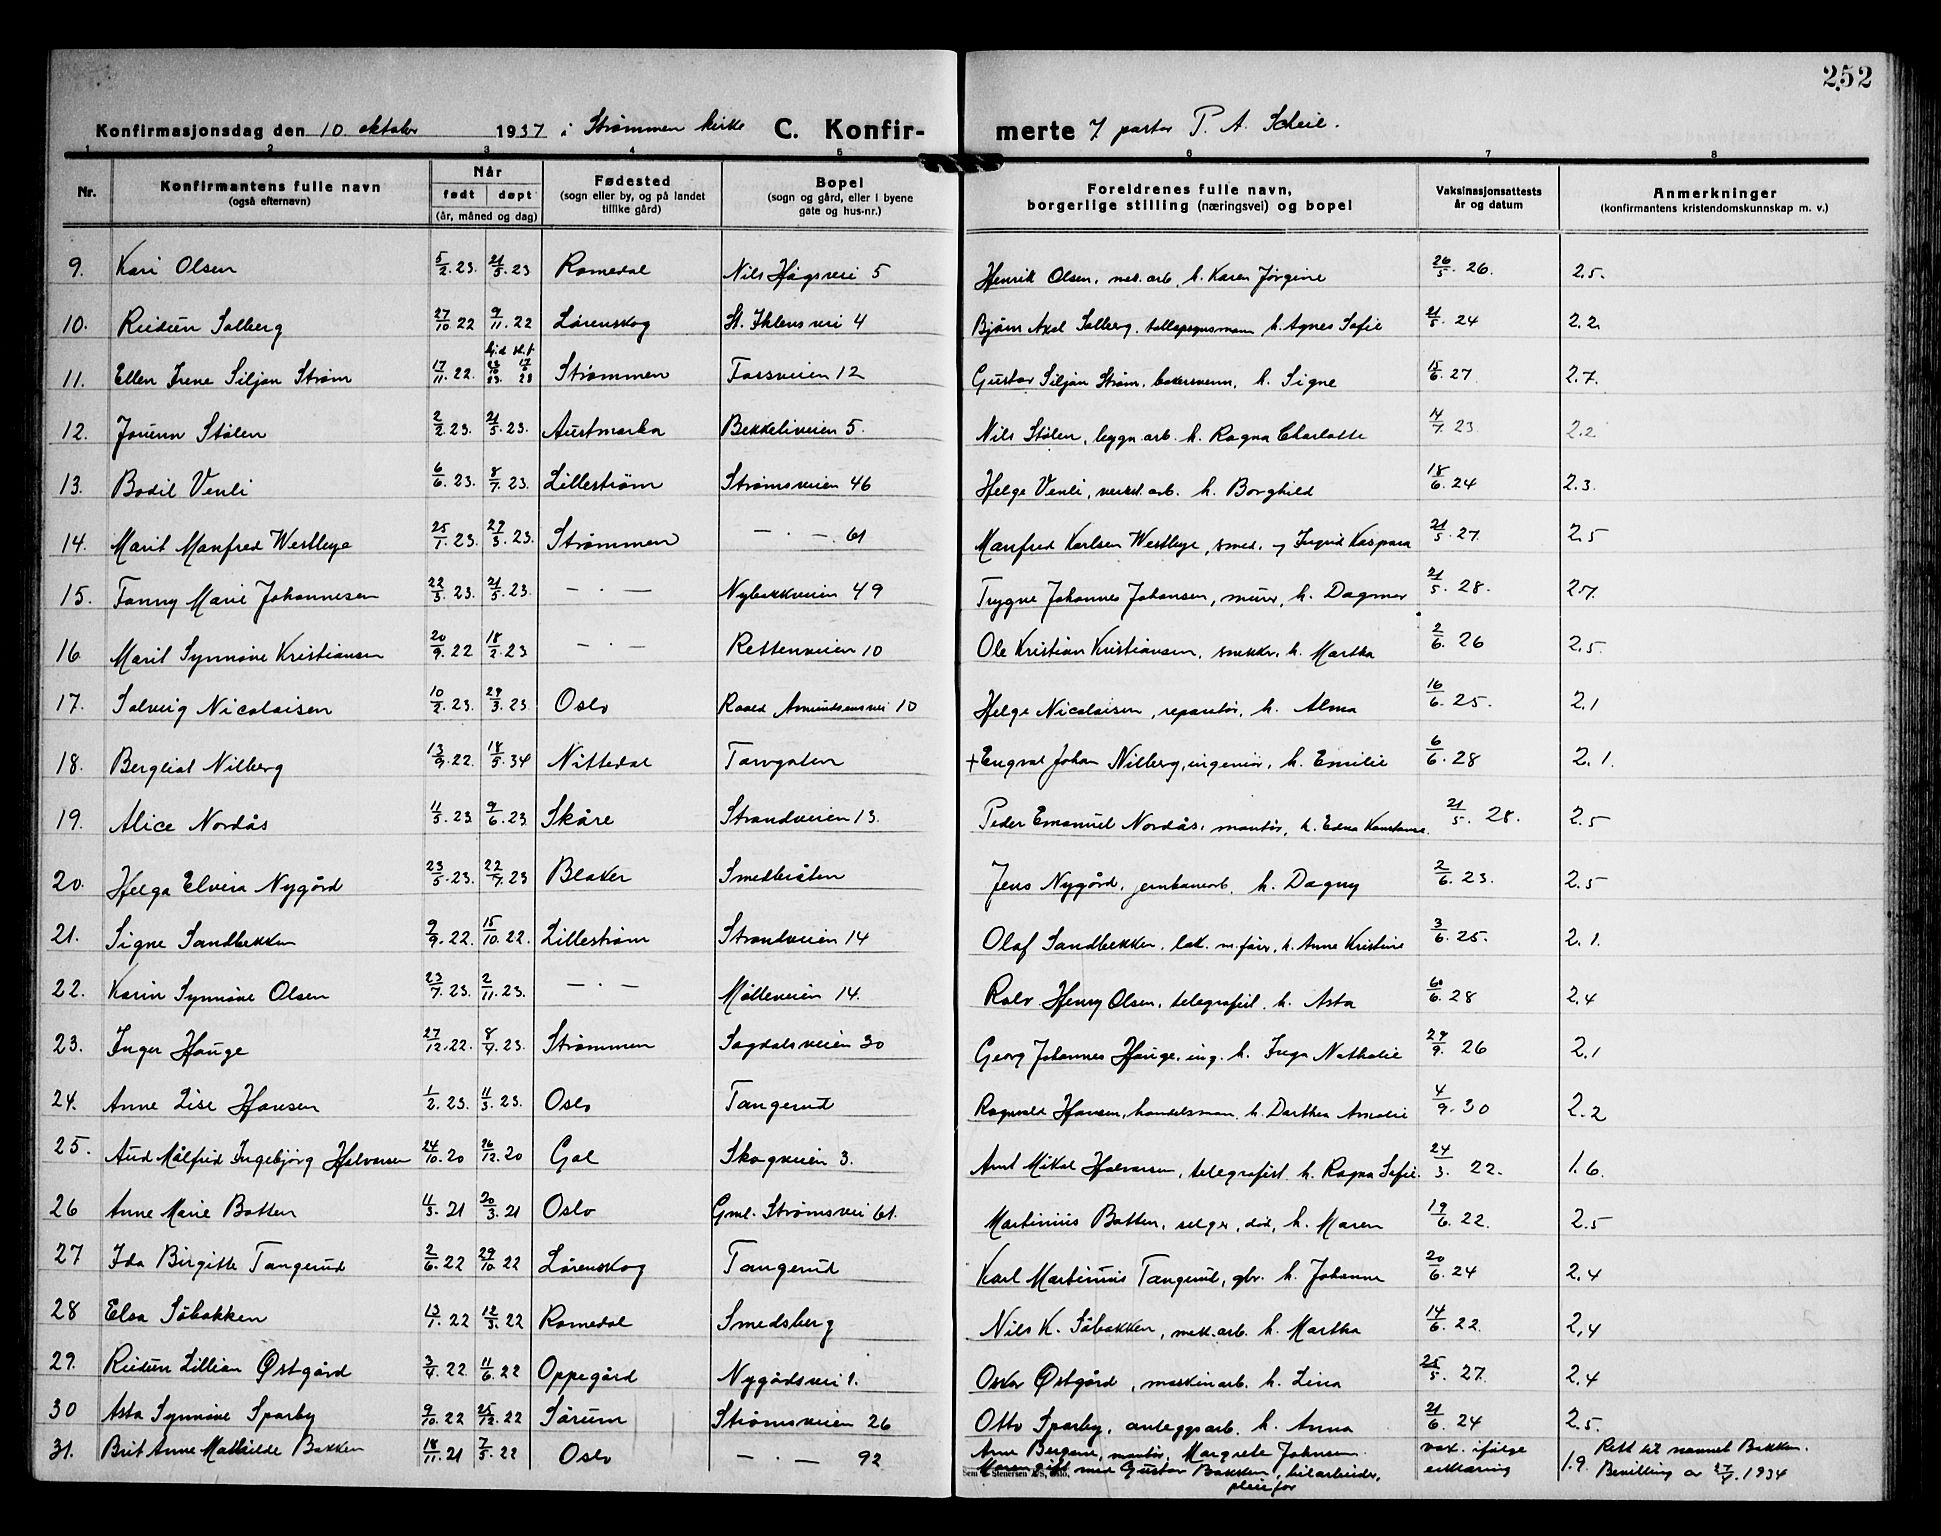 252
Konfirmasjonsdag den 10 oktober 1937 i Strømmen kirke C. Konfir- merte 7 pastor P. A. Scheie.
1 2 3 4 5 6 7 8
Nr. Konfirmantens fulle navn (også efternavn) Når født døpt (år, måned og dag) Fødested (sogn eller by, og på landet tillike gård) Bopel (sogn og gård, eller i byene gate og hus-nr.) Foreldrenes fulle navn, borgerlige stilling (næringsvei) og bopel Vaksinasjonsattests år og datum Anmerkninger (konfirmantens kristendomskunnskap m. v.)
9. Kari Olsen 5/2.23. 21/5.23 Romedal Nils Hågsvei 5 Henrik Olsen, mek.arb, h. Karen Jørgine 26/5.26. 2.5.
10. Reidun Solberg 27/10 22 9/11.22 Lørenskog St. Ihlensvei 4 Bjørn Axel Solberg. tollopsynsmann h. Agnes Sofie 21/5.24 2.2
11. Ellen Irene Siljan Strøm 17/11.22. 23/10 23. 17/6 28 Strømmen Fossveien 12 Gustav Siljan Strøm, bakersvenn, h. Signe 15/6.27 2.7.
12. Jorunn Stølen 2/2.23. 21/5.23. Austmarka Bekkeliveien 5. Nils Stølen, bygn.arb. h. Ragna Charlotte 4/7 23 2.2
13. Bodil Venli 6/6.23. 8/7.23. Lillestrøm Strømsveien 46 Helge Venli, verkst.arb. h. Borghild 18/6.24 2.3.
14. Marit Manfred Westbye 25/1.23. 29/3.23. Strømmen — · —. 61 Manfred Karlsen Westbye, smed. og Ingrid Kaspara 21/5.27. 2.5
15. Fanny Marie Johannesen 22/3.23. 21/5.23. — · — Nybakkveien 49 Trygve Johannes Johansen, murer, h. Dagmar 21/5.28. 2.7.
16. Marit Synnøve Kristiansen 20/9.22 18/2.23 — · — Rettenveien 10 Ole Kristian Kristiansen, snekker, h. Martha 2/6.26 2.5.
17. Solveig Nicolaisen 10/2.23. 29/3.23. Oslo Roald Amundsensvei 10 Helge Nicolaisen, reparatør, h. Alma 16/6.25. 2.1
18. Bergliot Nilberg 13/9.22. 18/5.34 Nittedal Torvgaten + Engval Johan Nilberg, ingeniør, h. Emilie 6/6.28 2.1.
19. Alice Nordås 11/5.23 9/6.23 Skåre Strandveien 13. Peder Emanuel Nordås, montør, h. Edna Konstanse. 21/5.28. 2.5
20. Helga Elvira Nygård 23/5.23. 22/7.23 Blaker Smedbråten Jens Nygård, jernbanearb. h. Dagny 2/6.23. 2.5
21. Signe Sandbekken 9/9.22. 15/10.22. Lillestrøm Strandveien 14 Olaf Sandbekken, lok. m.fører, h. Anne Kristine 3/6.25. 2.1.
22. Karin Synnøve Olsen 23/7.23. 2/11.23. — · — Mølleveien 14. Rolv Henry Olsen, telegrafist. h. Asta 6/6.28 2.4
23. Inger Hauge 27/12.22. 8/4.23. Strømmen Sagdalsveien 30 Georg Johannes Hauge, ing. h. Inga Nathalie 29/9.26 2.1
24. Anne Lise Hansen 1/2.23. 11/3.23. Oslo Tangerud Ragnvald Hansen, handelsman, h. Dorthea Amalie 4/9.30 2.2
25. Aud Målfrid Ingebjørg Halvorsen 24/10.20 26/12.20 Gol Skogveien 3. Arnt Mikal Halvorsen, telegrafist h. Ragna Sofie. 24/3. 22. 1.6.
26 Anne Marie Botten 4/3.21 20/3.21 Oslo Gml. Strømsvei 61. Martinius Botten, selger, død, h. Maren 19/6.22. 2.5
27 Ida Birgitte Tangerud 2/6.22 29/10 22 Lørenskog Tangerud Karl Martinius Tangerud, gbr. h. Johanne 20/6.24 2.4
28 Elsa Såbakken 13/1.22 12/3.22 Romedal Smedsberg Nils K. Såbakken, mek.arb. h. Martha 14/6.22. 2,4
29. Reidun Lillian Østgård 3/4.22. 11/6.22 Oppegård Nygårdsvei 1. Oskar Østgård, maskinarb. h. Lina 25/5.27. 2.4
30 Asta Synnøve Sparby 9/10.22 25/12.22 Sørum Strømsveien 26 Otto Sparby, anleggsarb. h. Anna 21/6.24 2.5.
31. Brit Anne Mathilde Bakken 18/11.21 7/5.22 Oslo — · — 92 Arne Bergane, montør, Margrete Johnsen. vax. ifølge erklæring 1.9. Rett til navnet Bakken. Bevilling av 27/4.1934
Moren gift med Gustav Bakken, bilarbeider, pleiefor